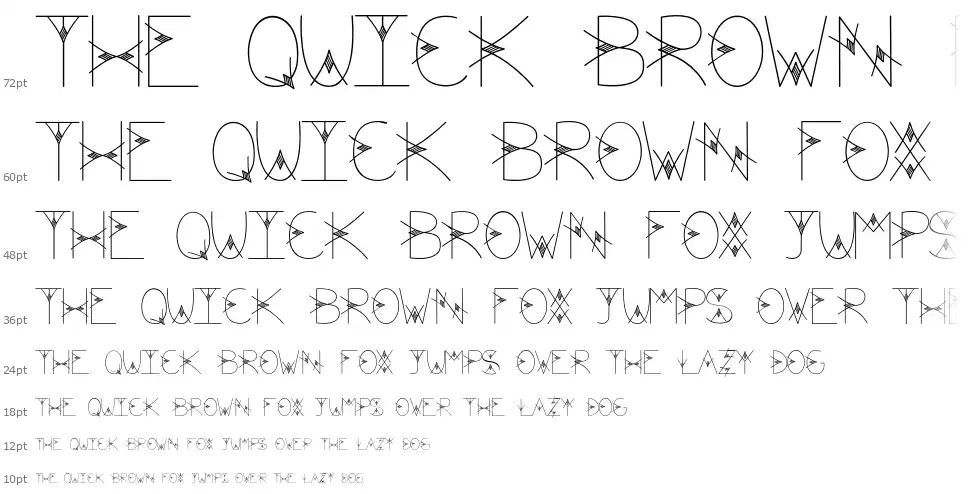 72pt THE QUICK BROWN
60pt THE QUICK BROWN FOX
48pt THE QUICK BROWN FOX JUMPS
36pt THE QUICK BROWN FOX JUMPS OVER THE
24pt THE QUICK BROWN FOX JUMPS OVER THE LAZY DOG
18pt THE QUICK BROWN FOX JUMPS OVER THE LAZY DOG
12pt THE QUICK BROWN FOX JUMPS OVER THE LAZY DOG
10pt THE QUICK BROWN FOX JUMPS OVER THE LAZY DOG